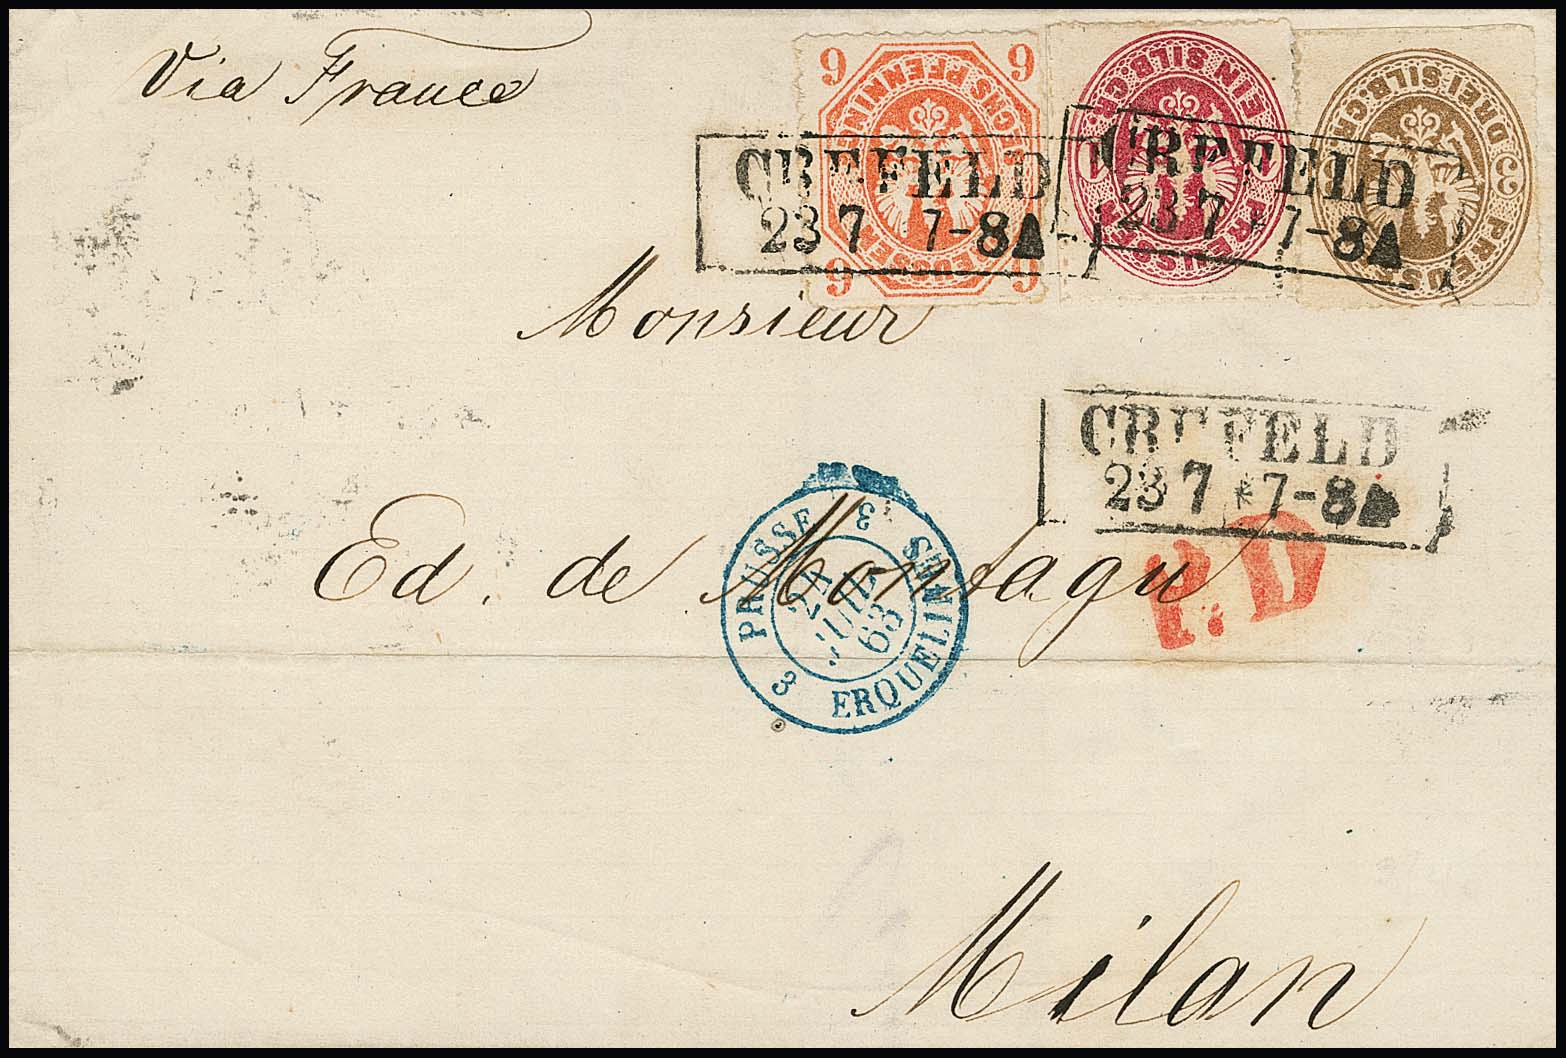 Via France
6 6
SECHS PFENNINGE
PREUSSEN
6 6
1 EIN SILB. GR. 1
PREUSSEN
3 DREI SILB. GR. 3
PREUSSEN
CREFELD
23 7 7-8
CREFELD
23 7 * 7-8
Monsieur
CREFELD
23 7 * 7-8
Ed. de Montagu
3 PRUSSE 3
24
JUIL.
63
ERQUELINES
P.D
Milan